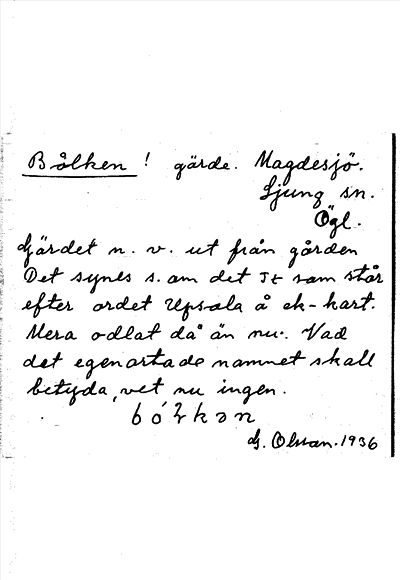 Bålken! gärde. Magdesjö.
Ljung sn.
Ögl.
Gärdet n. v. ut från gården
Det synes s. om det st som står
efter ordet Upsala å ek-kart.
Mera odlat då än nu. Vad
det egenartade namnet skall
betyda, vet nu ingen.
G. Olsson. 1936